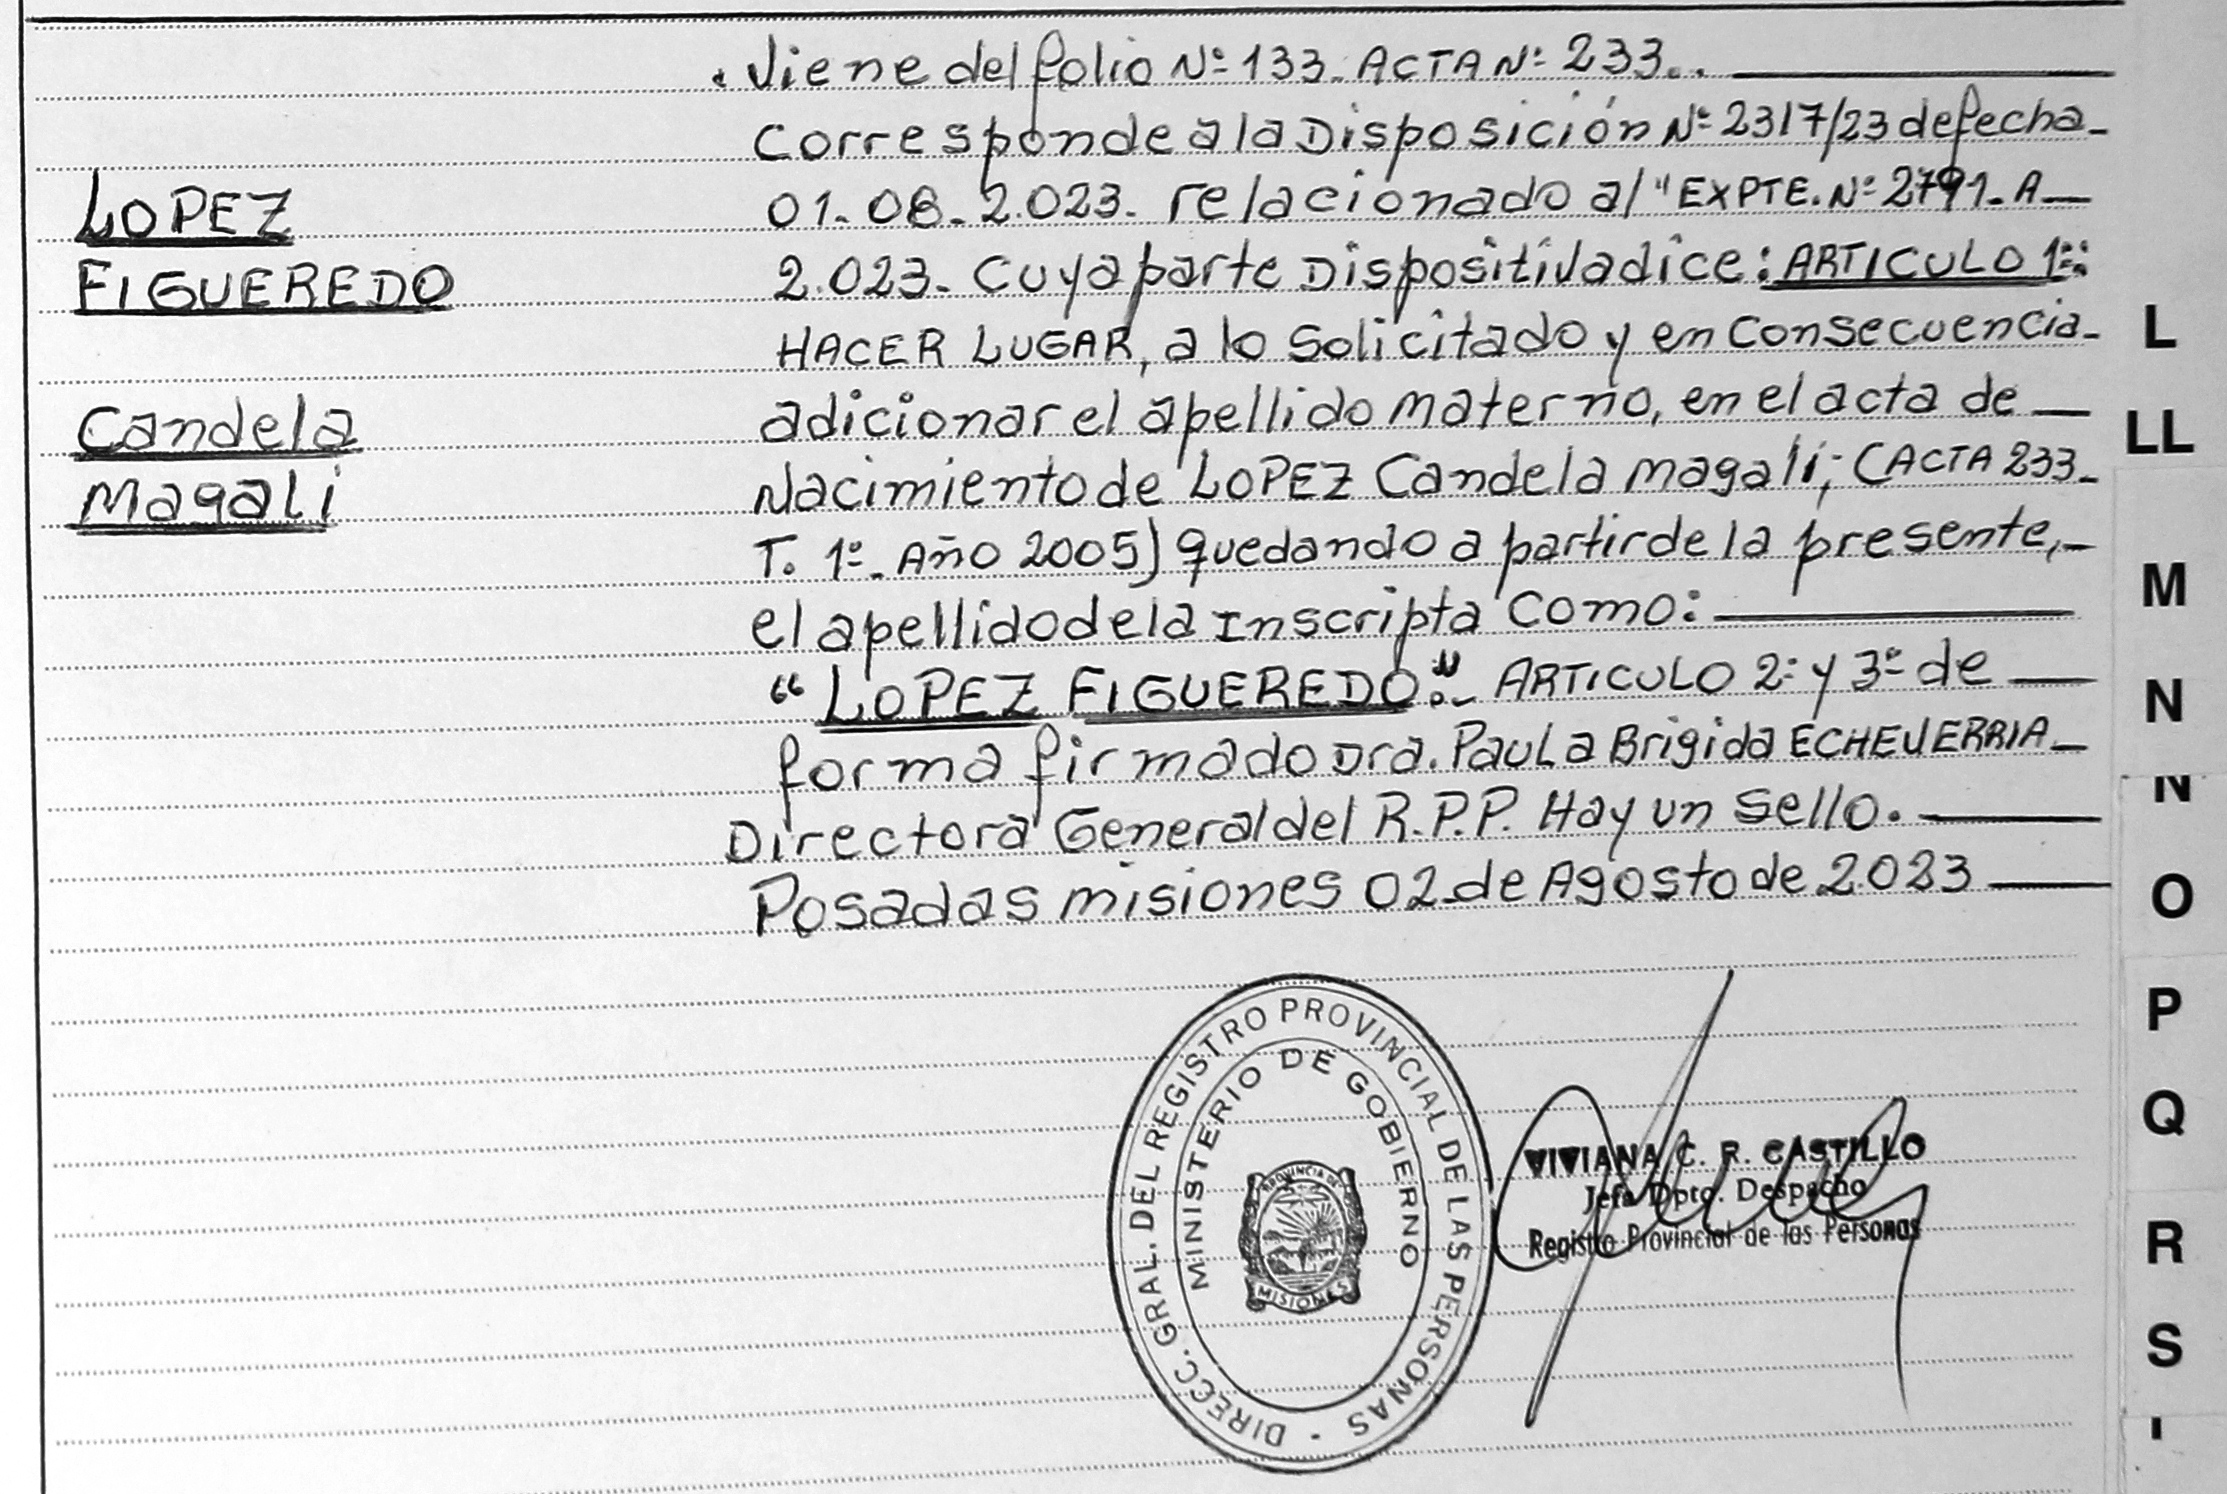 . Viene del folio Nº 133. ACTA Nº 233..
Corresponde a la Disposición Nº 2317/23 de fecha
01-08-2.023. relacionado al "EXPTE. Nº 2791-A
2.023. Cuya parte Dispositiva dice: ARTICULO 1º:
HACER LUGAR, a lo Solicitado y en Consecuencia
adicionar el apellido materno, en el acta de
Nacimiento de LOPEZ Candela Magali; (ACTA 233-
T. 1º- Año 2005) quedando a partir de la presente,
el apellido de la Inscripta Como:
"LOPEZ FIGUEREDO".- ARTICULO 2º y 3º de
forma firmado Dra. Paula Brigida ECHEVERRIA
Directora General del R.P.P. Hay un sello.
Posadas misiones 02 de Agosto de 2.023
LOPEZ
FIGUEREDO
Candela
Magali
DIRECC. GRAL. DEL REGISTRO PROVINCIAL DE LAS PERSONAS -
MINISTERIO DE GOBIERNO
PROVINCIA DE
MISIONES
VIVIANA C. R. CASTILLO
Jefa Dpto. Despacho
Registro Provincial de las Personas
L
LL
M
N
N
O
P
Q
R
S